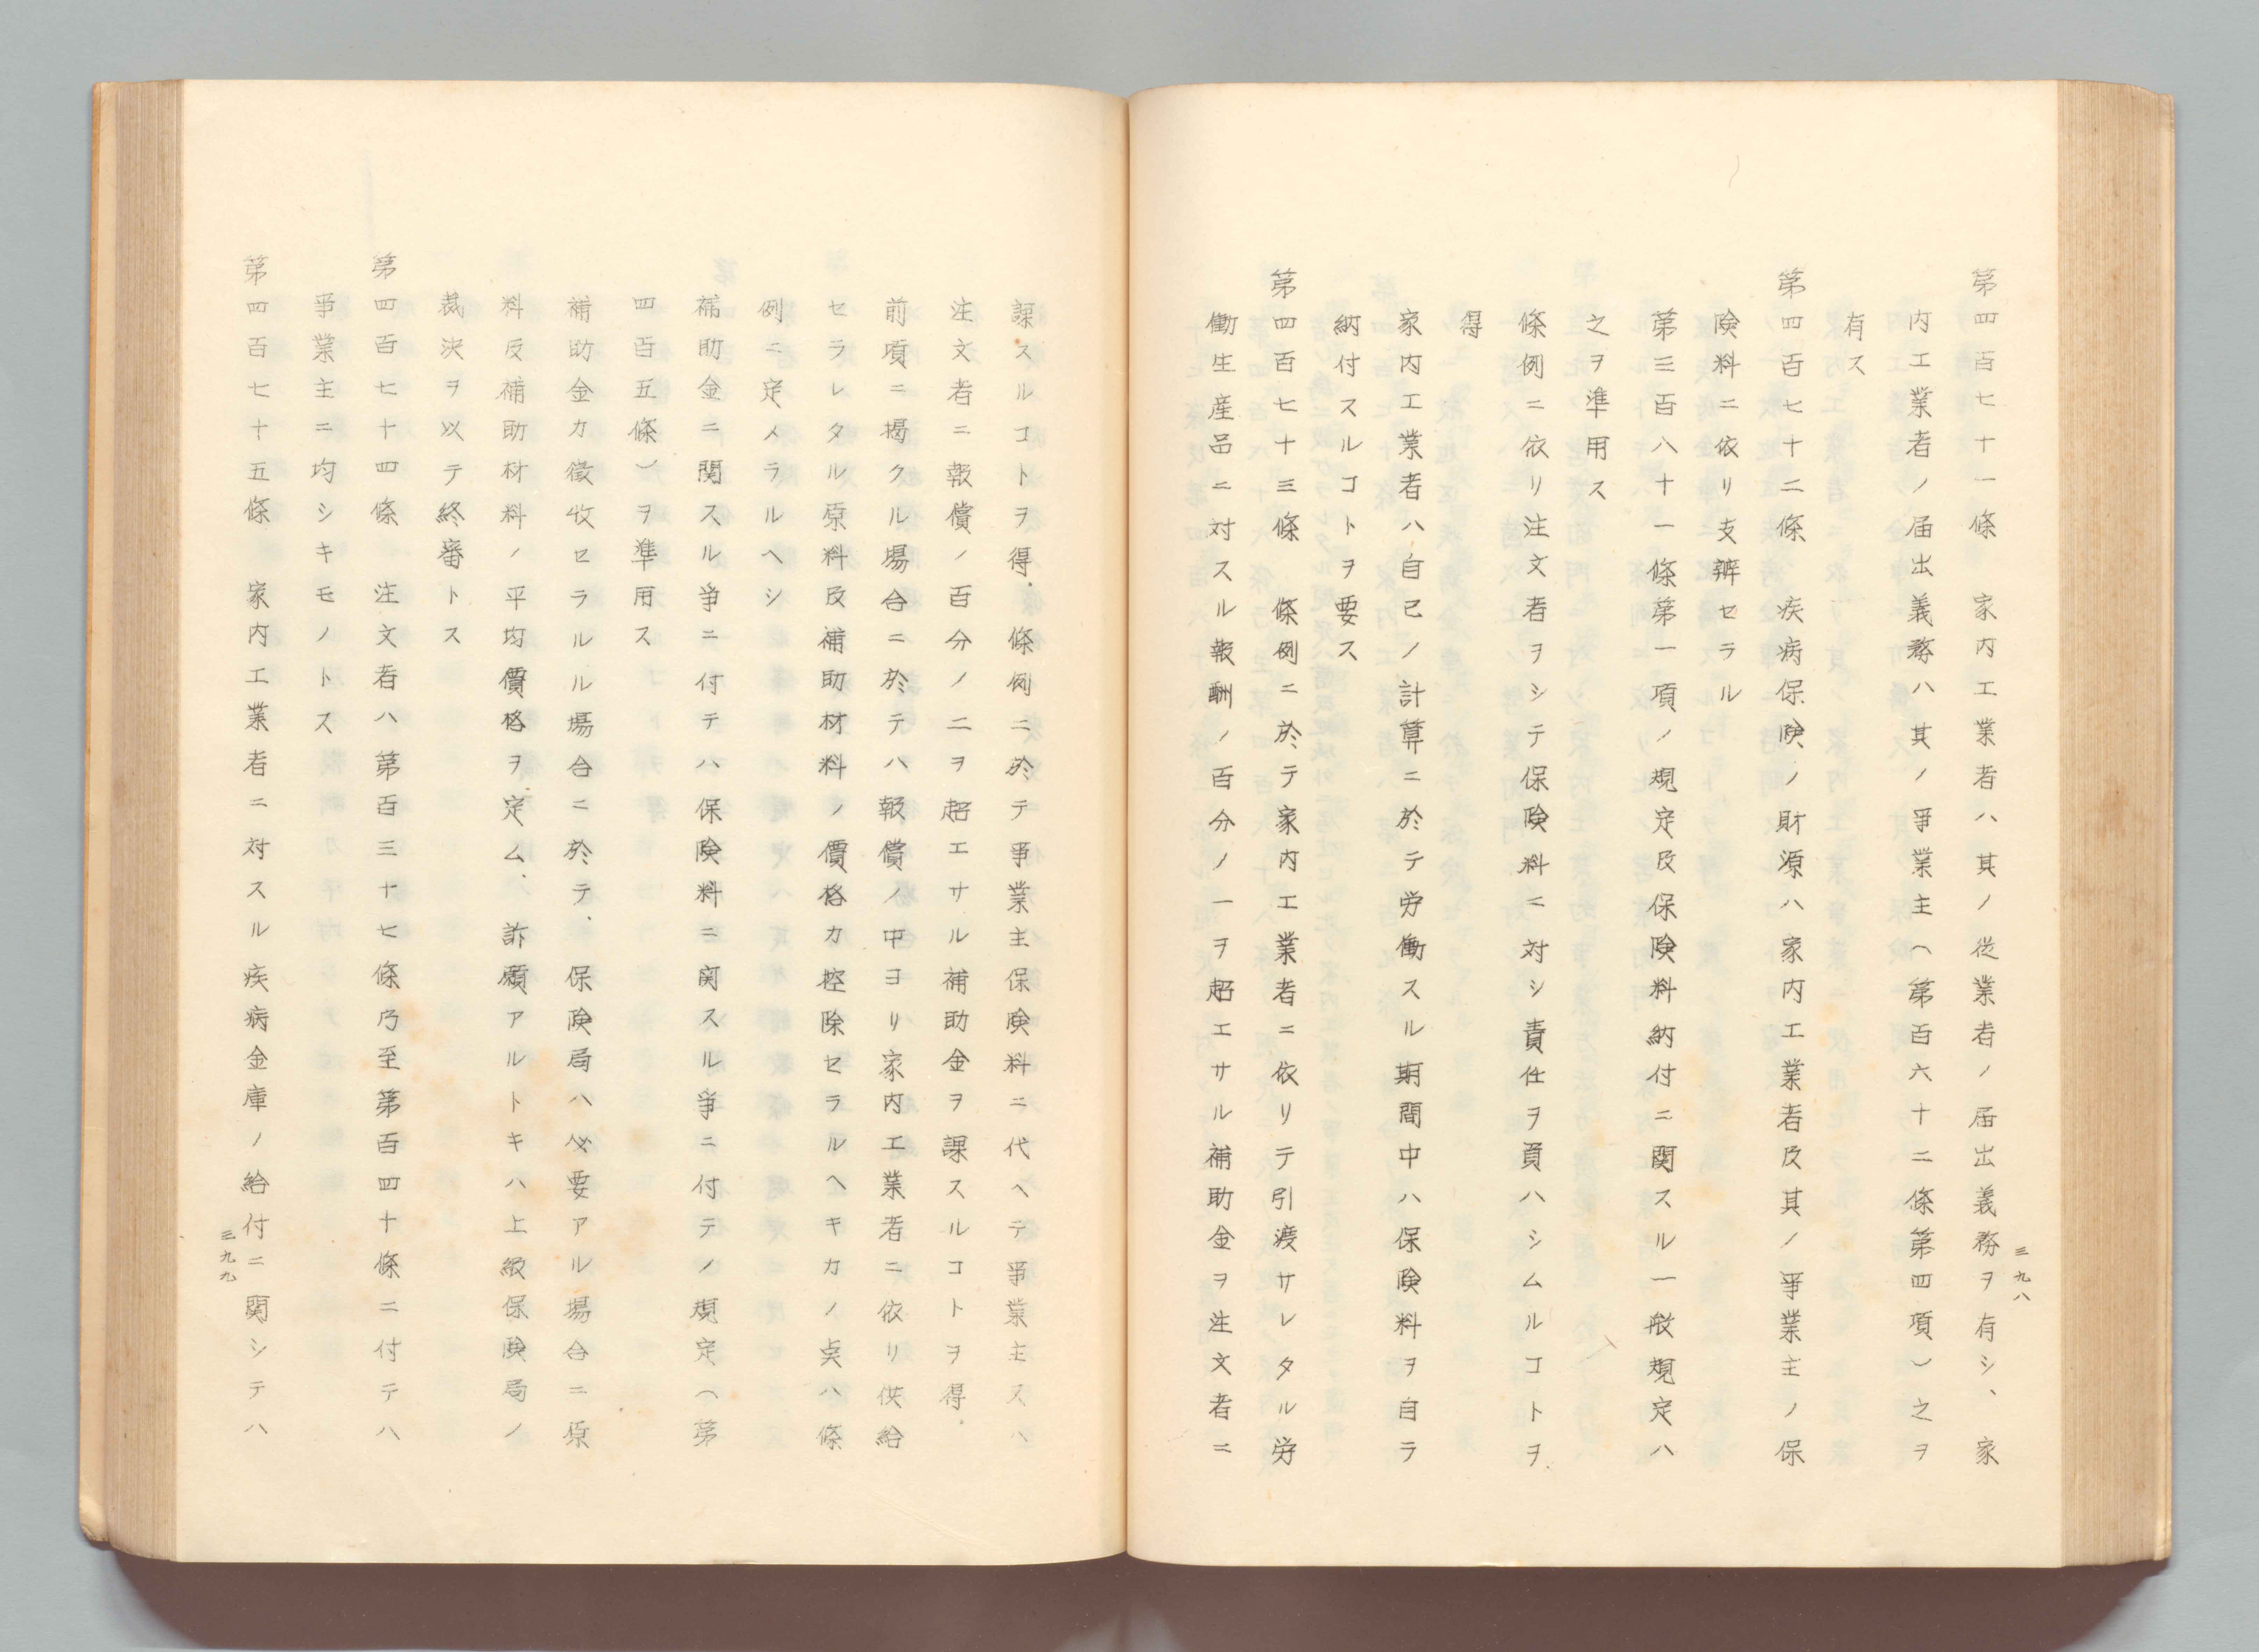 第四百七十一條　家内工業者ハ其ノ従業者ノ届出義務ヲ有シ、家
内工業者ノ届出義務ハ其ノ事業主（第百六十二條第四項）之ヲ
有ス
第四百七十二條　疾病保険ノ財源ハ家内工業者及其ノ事業主ノ保
険料ニ依リ支辨セラル
第三百八十一條第一項ノ規定及保険料納付ニ関スル一般規定ハ
之ヲ準用ス
條例ニ依リ注文者ヲシテ保険料ニ対シ責任ヲ負ハシムルコトヲ
得
家内工業者ハ自己ノ計算ニ於テ労働スル期間中ハ保険料ヲ自ラ
納付スルコトヲ要ス
第四百七十三條　條例ニ於テ家内工業者ニ依リテ引渡サレタル労
働生産品ニ対スル報酬ノ百分ノ一ヲ超エサル補助金ヲ注文者ニ
三九八
課スルコトヲ得．條例ニ於テ事業主保険料ニ代ヘテ事業主スハ
注文者ニ報償ノ百分ノ二ヲ超エサル補助金ヲ課スルコトヲ得．
前項ニ掲クル場合ニ於テハ報償ノ中ヨリ家内工業者ニ依リ供給
セラレタル原料及補助材料ノ價格カ控除セラルヘキカノ点ハ條
例ニ定メラルヘシ
補助金ニ関スル争ニ付テハ保険料ニ関スル争ニ付テノ規定（第
四百五條）ヲ準用ス
補助金カ徴收セラルル場合ニ於テ、保険局ハ必要アル場合ニ原
料反補助材料ノ平均價格ヲ定ム、訴願アルトキハ上級保険局ノ
裁決ヲ以テ終審トス
第四百七十四條　注文者ハ第百三十七條乃至第百四十條ニ付テハ
事業主ニ均シキモノトス
第四百七十五條　家内工業者ニ対スル疾病金庫ノ給付ニ関シテハ
三九九